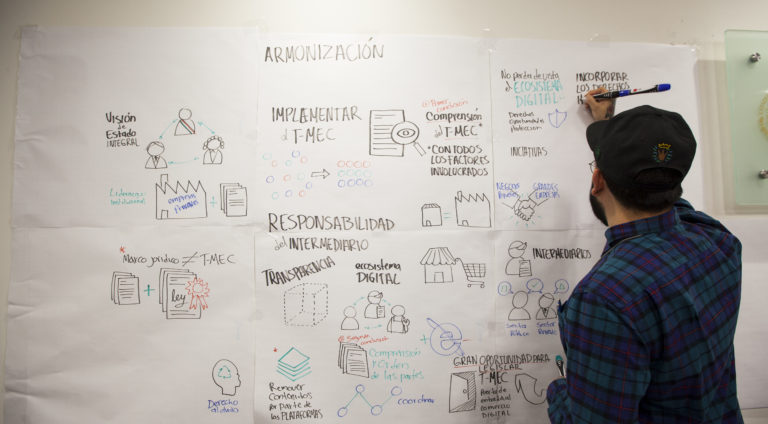 ARMONIZACIÓN
VISIÓN
de
Estado
INTEGRAL
Liderazgo
Institucional
empresas
+
* Marco jurídico ≠ T-MEC
+
ley
Derecho
al olvido
IMPLEMENTAR
el T-MEC
Primer conclusión
Comprensión
del T-MEC*
* CON TODOS
LOS FACTORES
INVOLUCRADOS
=
RESPONSABILIDAD
del INTERMEDIARIO
TRANSPARENCIA
ecosistema
DIGITAL
*
Remover
Contenidos
por parte de
las PLATAFORMAS
Segunda conclusión
Comprensión
y Orden
de las partes
+
coordinar
No perder de vista
el ECOSISTEMA
DIGITAL
Derechos
oportunidades
protección
INICIATIVAS
NEGOCIOS
Pequeños
GRANDES
EMPRESAS
INCORPORAR
LOS DERECHOS
H
INTERMEDIARIOS
Sector
Público
Sector
Privado
GRAN OPORTUNIDAD PARA
LEGISLAR
T-MEC
Puerta de
entrada al
comercio
DIGITAL